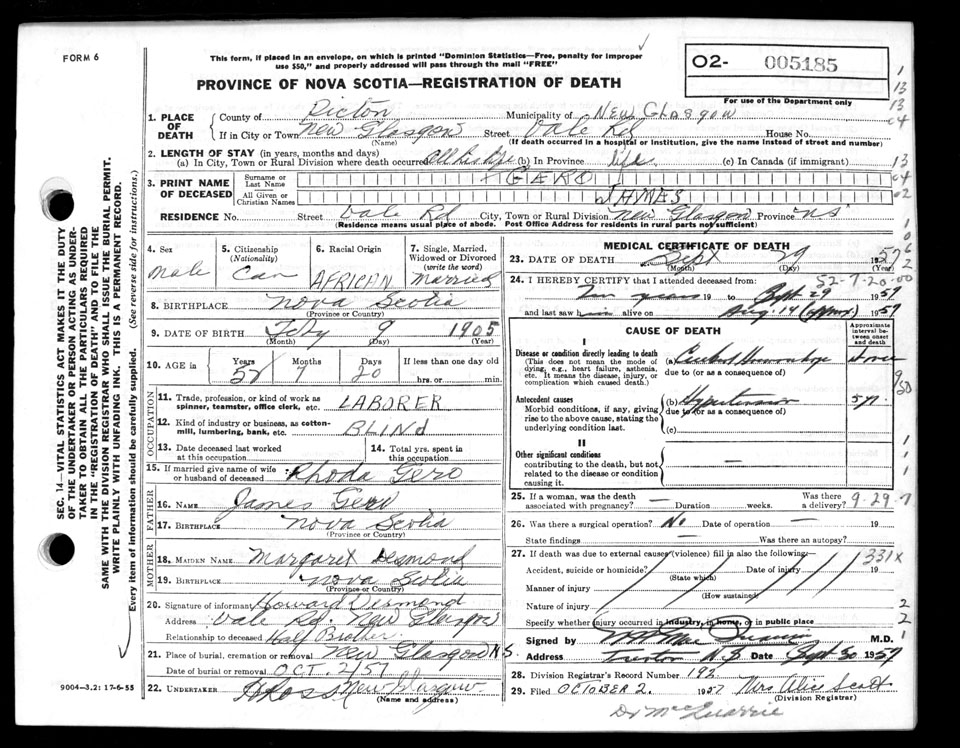 FORM 6
This form, if placed in an envelope, on which is printed "Dominion Statistics—Free, penalty for improper
use $50," and properly addressed will pass through the mail "FREE"
PROVINCE OF NOVA SCOTIA—REGISTRATION OF DEATH
02- 005185
For use of the Department only
1. PLACE OF DEATH
County of Pictou Municipality of New Glasgow
If in City or Town New Glasgow Street Vale Rd House No.
(Name) (If death occurred in a hospital or institution, give the name instead of street and number)
2. LENGTH OF STAY (in years, months and days)
(a) In City, Town or Rural Division where death occurred All his life (b) In Province life (c) In Canada (if immigrant)
3. PRINT NAME OF DECEASED
Surname or Last Name GERO
All Given or Christian Names JAMES
RESIDENCE No. Street Vale Rd City, Town or Rural Division New Glasgow Province NS
(Residence means usual place of abode. Post Office Address for residents in rural parts not sufficient)
4. Sex Male
5. Citizenship (Nationality) Can
6. Racial Origin AFRICAN
7. Single, Married, Widowed or Divorced (write the word) Married
8. BIRTHPLACE Nova Scotia
(Province or Country)
9. DATE OF BIRTH Feby 9 1905
(Month) (Day) (Year)
10. AGE Years 52 Months 7 Days 20 If less than one day old hrs. or min.
OCCUPATION
11. Trade, profession, or kind of work as spinner, teamster, office clerk, etc. LABORER
12. Kind of industry or business, as cotton-mill, lumbering, bank, etc. BLIND
13. Date deceased last worked at this occupation
14. Total yrs. spent in this occupation
15. If married give name of wife or husband of deceased Rhoda Gero
FATHER
16. NAME James Gero
17. BIRTHPLACE Nova Scotia
(Province or Country)
MOTHER
18. MAIDEN NAME Margaret Desmond
19. BIRTHPLACE Nova Scotia
(Province or Country)
20. Signature of informant Howard Desmond
Address Vale Rd. New Glasgow
Relationship to deceased Half Brother
21. Place of burial, cremation or removal New Glasgow N.S.
Date of burial or removal OCT. 2/57
22. UNDERTAKER New Glasgow
(Name and address)
9004—3,2: 17-6-55
MEDICAL CERTIFICATE OF DEATH
23. DATE OF DEATH Sept 29 1957
(Month) (Day) (Year)
24. I HEREBY CERTIFY that I attended deceased from: 52-7-20-00
years 19 to Sept 29 1957
and last saw him alive on Aug. 14 (approx) 1957
CAUSE OF DEATH
Approximate interval between onset and death
I
Disease or condition directly leading to death (a)
(This does not mean the mode of dying, e.g., heart failure, asthenia, etc. It means the disease, injury, or complication which caused death.)
due to (or as a consequence of)
Antecedent causes (b) Hypertension 5 yr.
Morbid conditions, if any, giving rise to the above cause, stating the underlying condition last.
due to (or as a consequence of)
(c)
II
Other significant conditions
contributing to the death, but not related to the disease or condition causing it.
25. If a woman, was the death associated with pregnancy? — Duration weeks. Was there a delivery? 9-29-7
26. Was there a surgical operation? No Date of operation — 19
State findings — Was there an autopsy?
27. If death was due to external causes (violence) fill in also the following— 331X
Accident, suicide or homicide? Date of injury 19
(State which)
Manner of injury
(How sustained)
Nature of injury
Specify whether injury occurred in industry, in home, or in public place
Signed by M.D.
Address Trenton N.S. Date Sept 30 1957
28. Division Registrar's Record Number 192
29. Filed OCTOBER 2. 1957 Mrs Alice Scott
(Division Registrar)
Dr McQuarrie
SEC. 14—VITAL STATISTICS ACT MAKES IT THE DUTY
OF THE UNDERTAKER OR PERSON ACTING AS UNDER-
TAKER TO OBTAIN ALL THE PARTICULARS REQUIRED
IN THE "REGISTRATION OF DEATH" AND TO FILE THE
SAME WITH THE DIVISION REGISTRAR WHO SHALL ISSUE THE BURIAL PERMIT.
WRITE PLAINLY WITH UNFADING INK. THIS IS A PERMANENT RECORD.
Every item of information should be carefully supplied. (See reverse side for instructions.)